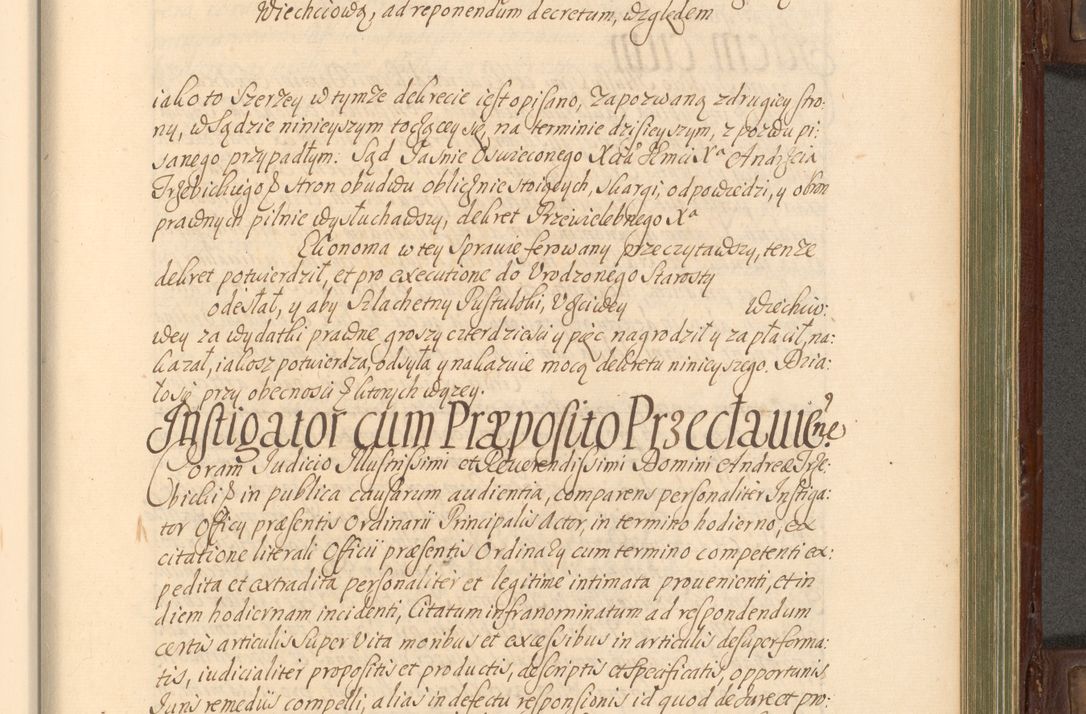 Wiechciową, ad reponendum decretum, względem
iako to Szerzey w tymże dekrecie iest opisano, Zapozwaną z drugiey stro:
ny, w Sądzie ninieyszym toczącey się, na terminie dzisieyszym, z pozwu pi:
sanego przypadłym: Sąd Jaśnie Oświeconego Xcia Jmci Xa Andrzeia
Trzebickiego & stron obudwu oblicznie stoiących, skargi, odpowiedzi, y obron
prawnych pilnie wysłuchawszy, dekret Przewielebnego Xa
Ekonoma w tey sprawie ferowany przeczytawszy, tenże
dekret potwierdził, et pro executione do Urodzonego Starosty
odesłał, y aby Szlachetny Pustulski, Uczciwey Wiechcio:
wey za wydatki prawne groszy czterdzieści y pięć nagrodził y zapłacił, na:
kazał, iakosz potwierdza, odsyła y nakazuie mocą dekretu ninieyszego. Dzia:
ło się przy obecności & których wyzey.
Instigator cum Præposito Przecłavien̄e
Coram Judicio Illustrissimi et Reverendissimi Domini Andreæ Trze:
bicki & in publica causarum audientia, comparens personaliter Instiga:
tor Officy præsentis Ordinarii Principalis Actor, in termino hodierno, ex
citatione literali Officii præsentis Ordinary cum termino competenti ex:
pedita et extradita personaliter et legitime intimata provenienti, et in
diem hodiernam incidenti, Citatum infranominatum ad respondendum
certis articulis Super Vita moribus et excessibus in articulis desuper forma:
tis, iudicialiter propositis et productis, descriptis et specificatis, opportunis
Juris remediis compelli, alias in defectu responsionis id quod de Jure et pro: